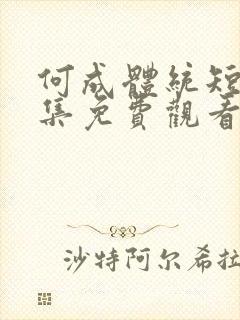 何成體統短
集免費觀看
沙特阿尔希拉